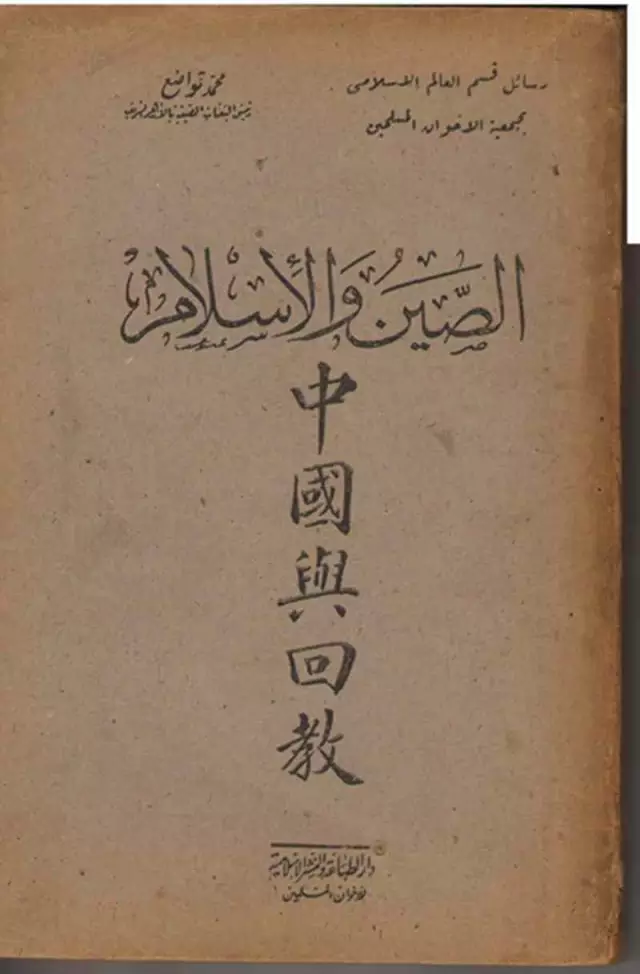 رسائل قسم العالم الاسلامى
بجمعية الاخوان المسلمين
محمد تواضع
رئيس البعثات الصينية بالأزهر الشريف
الصِّينُ وَالإِسْلَام
中
國
與
回
教
دار الطباعة والنشر الإسلامية
للاخوان المسلمين